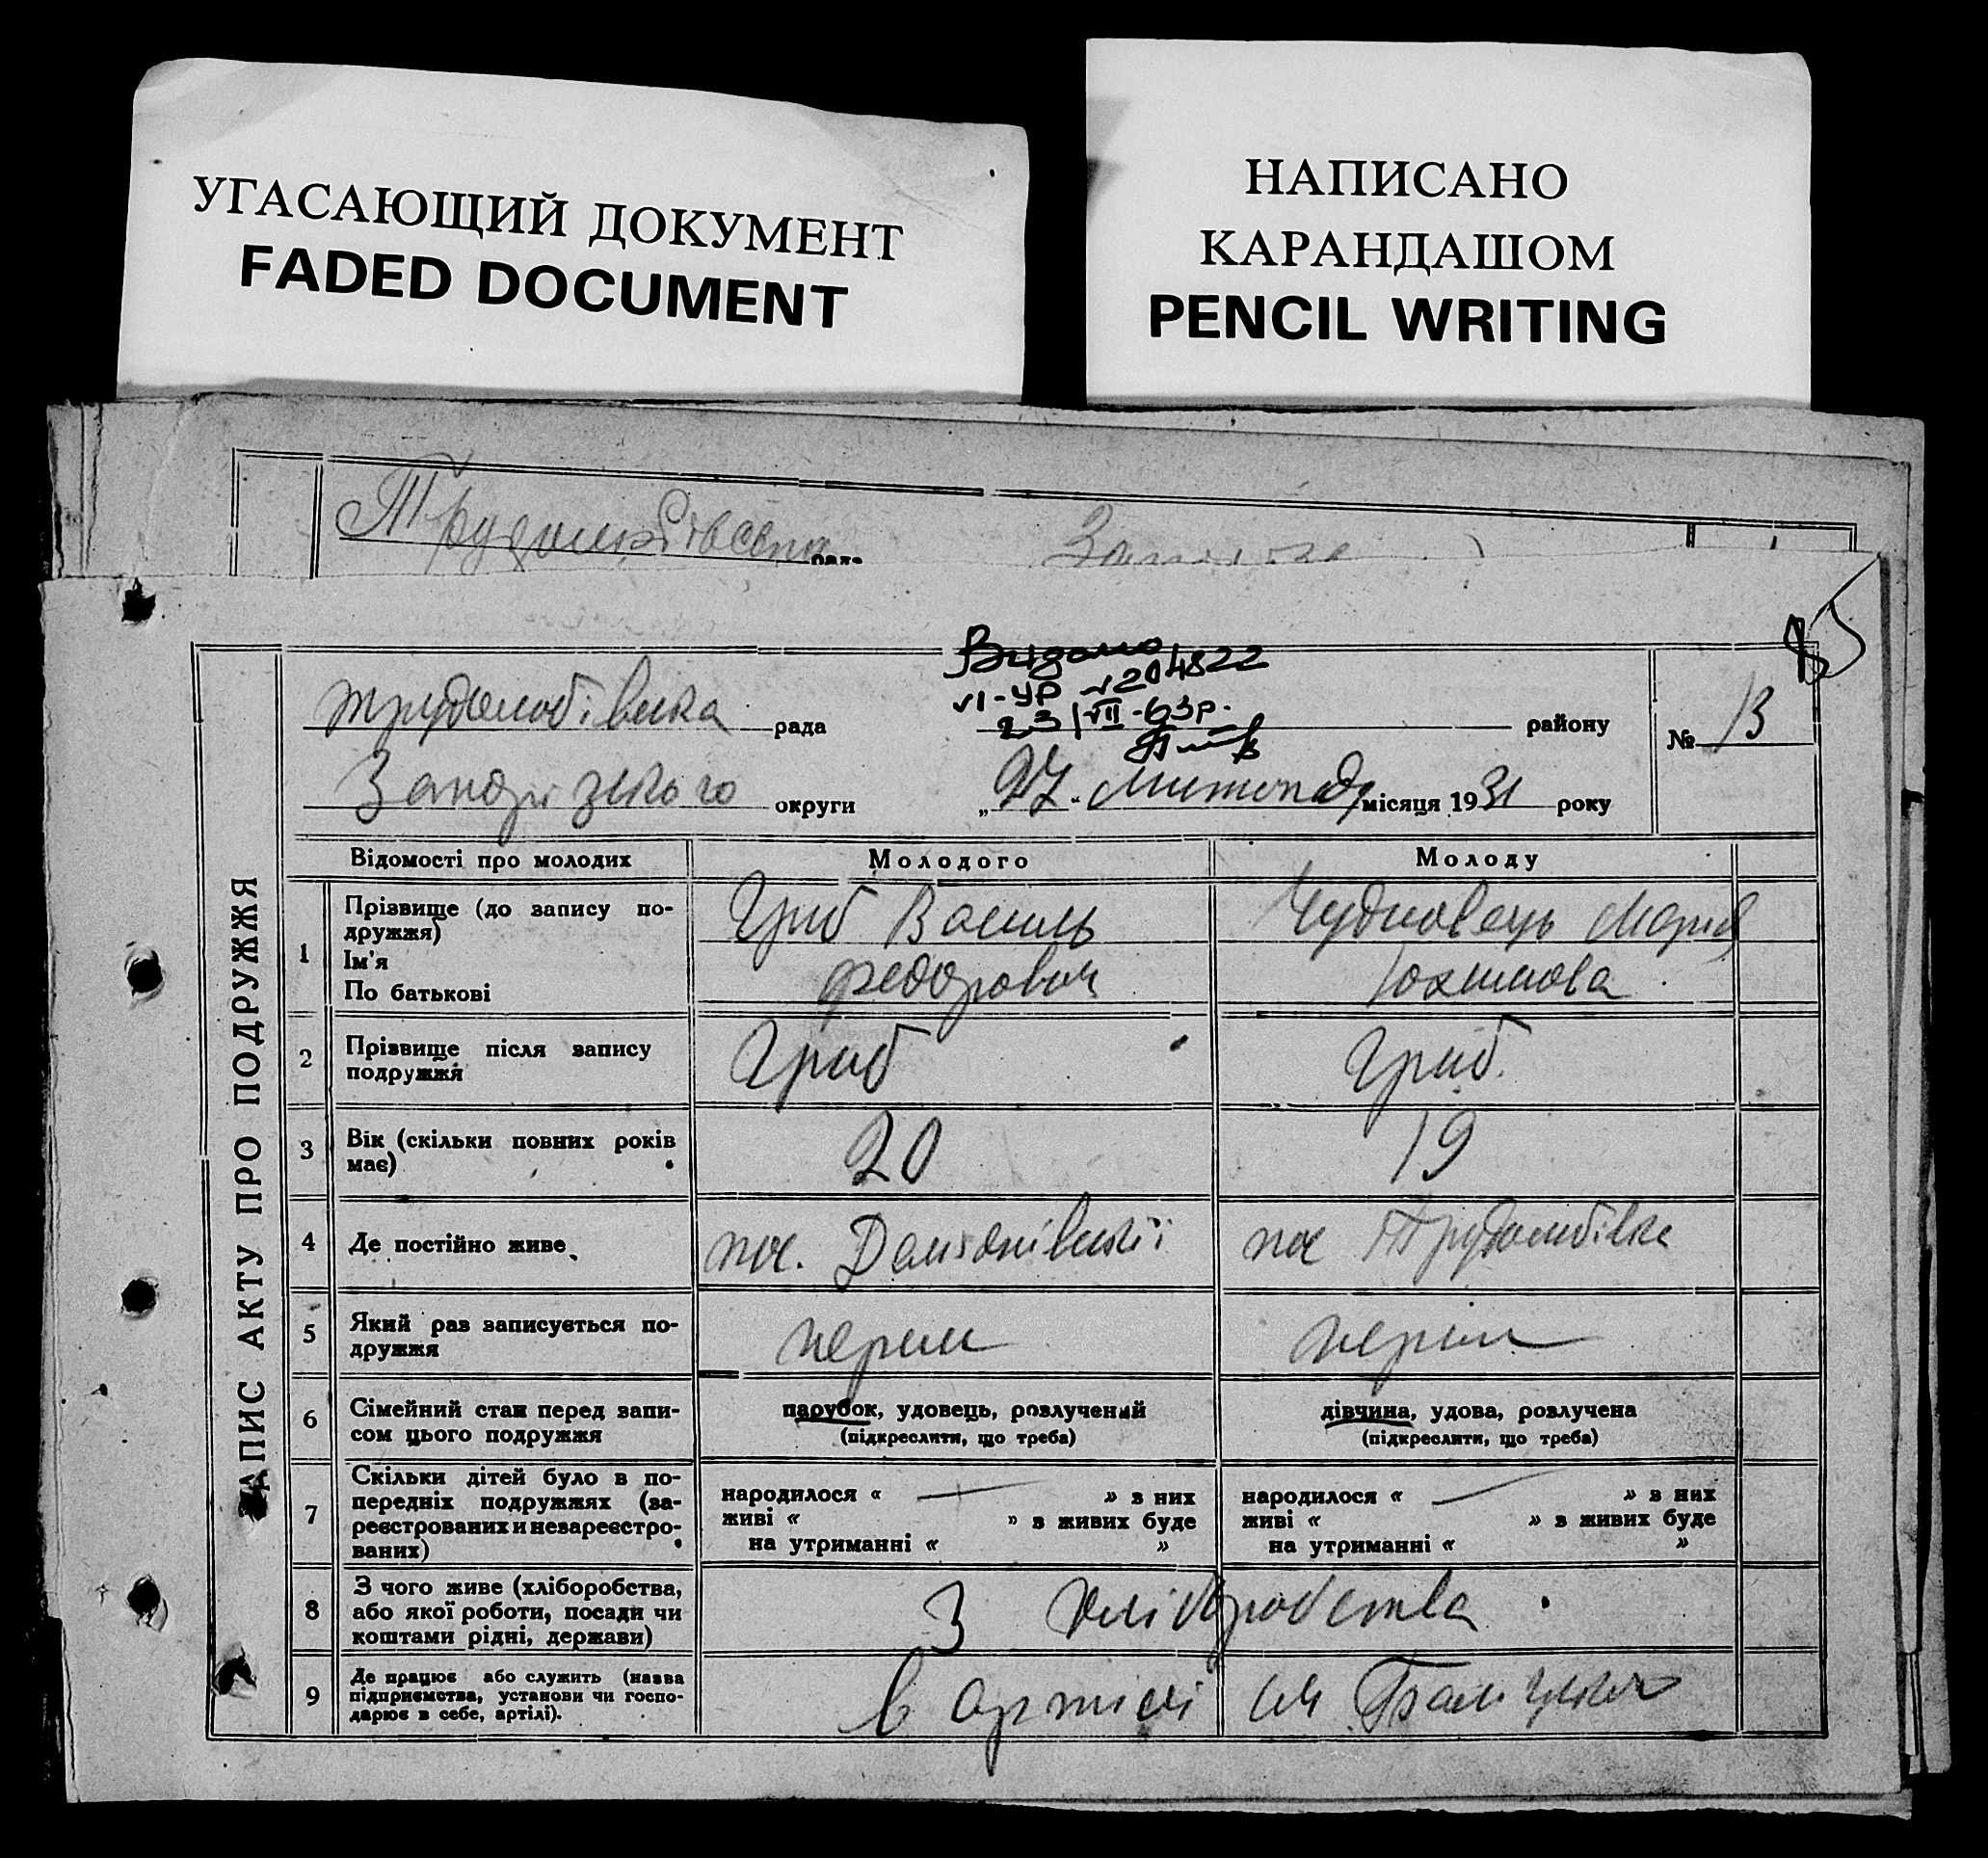 УГАСАЮЩИЙ ДОКУМЕНТ
FADED DOCUMENT
НАПИСАНО
КАРАНДАШОМ
PENCIL WRITING
рада
Видано
VI-УР №204822
23/VII-63р.
трудолюбівська рада району № 13
Запорізького округи „27“ Листопада місяця 1931 року
ЗАПИС АКТУ ПРО ПОДРУЖЖЯ
Відомості про молодих Молодого Молоду
1 Прізвище (до запису по-
дружжя)
Ім'я
По батькові
Гриб Василь
Федорович
Чудновець Марія
Юхимова
2 Прізвище після запису
подружжя
Гриб Гриб.
3 Вік (скільки повних років
має)
20 19
4 Де постійно живе
пос. пос Трудолюбівка
5 Який раз записується по-
дружжя
перши перши
6 Сімейний стан перед запи-
сом цього подружжя
парубок, удовець, розлучений
(підкреслити, що треба)
дівчина, удова, розлучена
(підкреслити, що треба)
7 Скільки дітей було в по-
передніх подружжях (за-
реєстрованих и незареєстро-
ваних)
народилося « — » з них
живі « » з живих буде
на утриманні « »
народилося « — » з них
живі « » з живих буде
на утриманні « »
8 З чого живе (хліборобства,
або якої роботи, посади чи
коштами рідні, держави)
З хліборобства
9 Де працює або служить (назва
підприємства, установи чи госпо-
дарює в себе, артілі).
в артілі ім